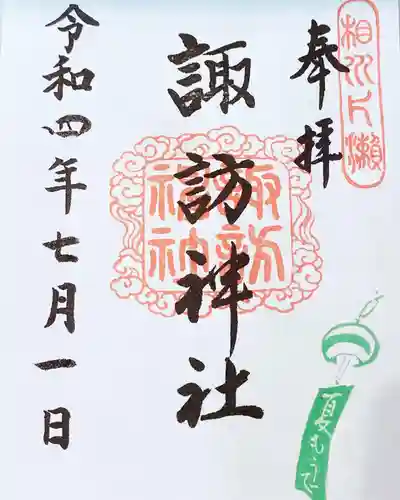 相州片瀬
奉拝
諏訪神社
諏訪神社
令和四年七月一日
夏もうで